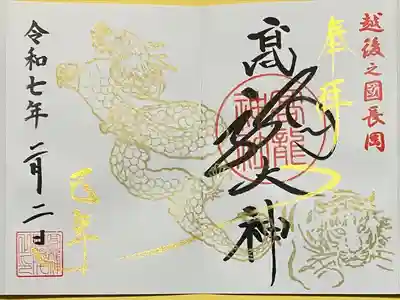 越後之國長岡
奉拝
高龍大神
高龍神社
令和七年二月二日